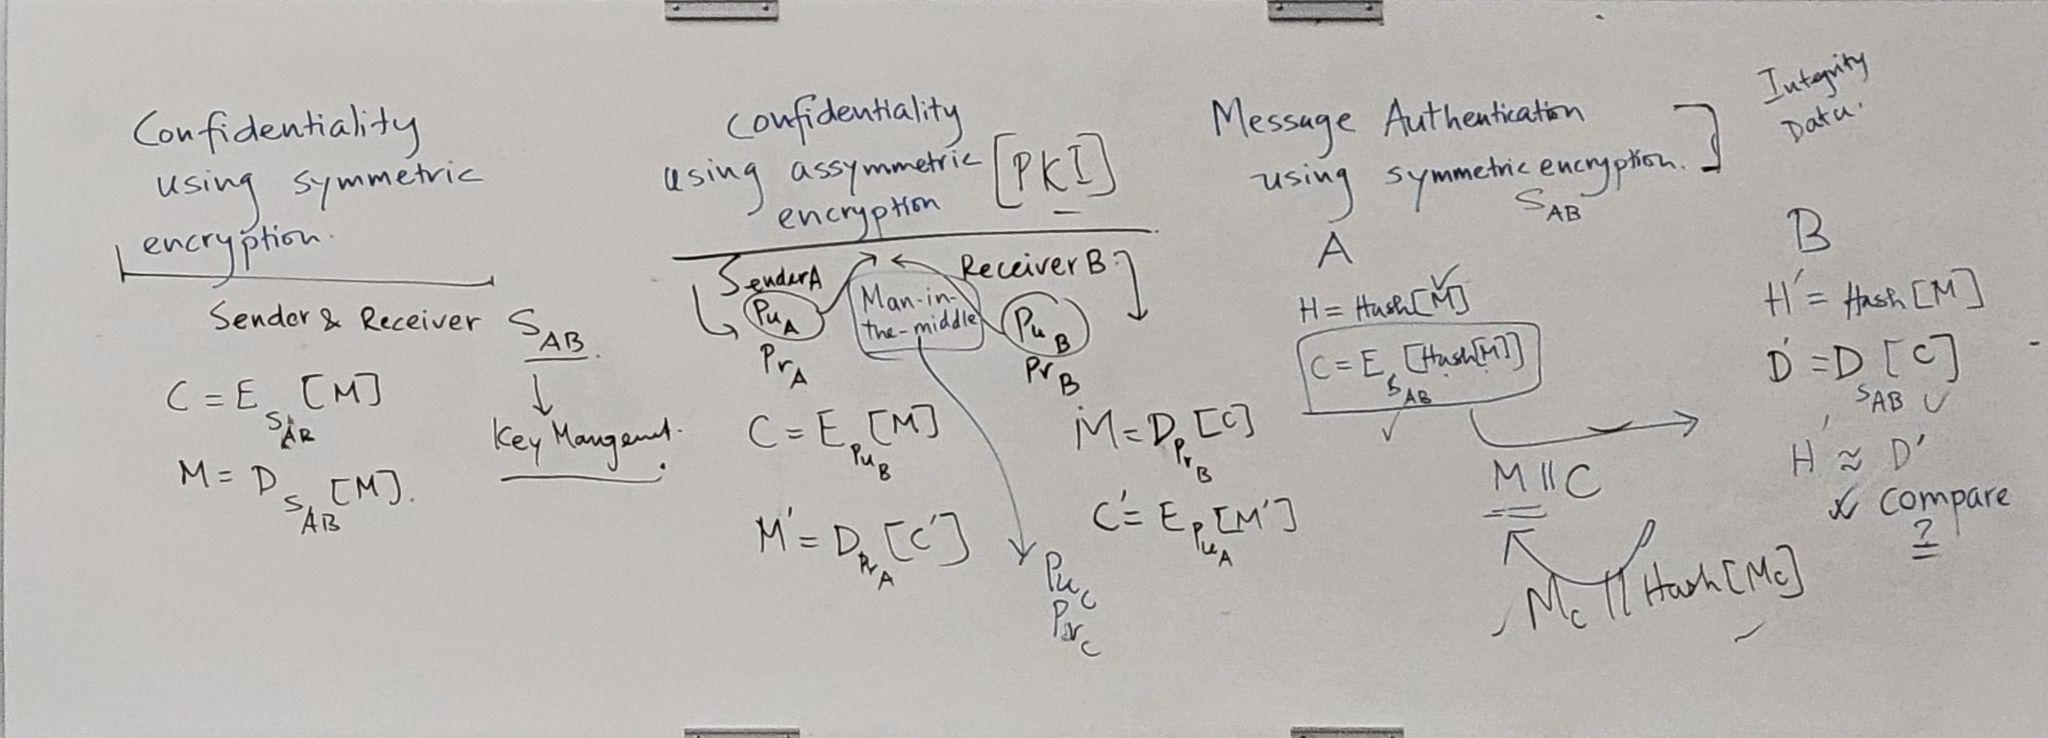 Confidentiality
using symmetric
encryption.
Sender & Receiver S_AB.
C = E_S_AB [M]
M = D_S_AB [M].
Key Mangement.
Confidentiality
using assymmetric [PKI]
encryption
Sender A
Pu_A
Pr_A
Man-in-
the-middle
Receiver B
Pu_B
Pr_B
C = E_Pu_B [M]
M' = D_Pr_A [C']
M = D_Pr_B [C]
C' = E_Pu_A [M']
Pu_C
Pr_C
Message Authentication
using symmetric encryption.
S_AB
Integrity
Data.
A
H = Hash[M]
C = E_S_AB [Hash[M]]
M || C
M_C || Hash[M_C]
B
H' = Hash[M]
D' = D_S_AB [C]
H' ≈ D'
compare
?